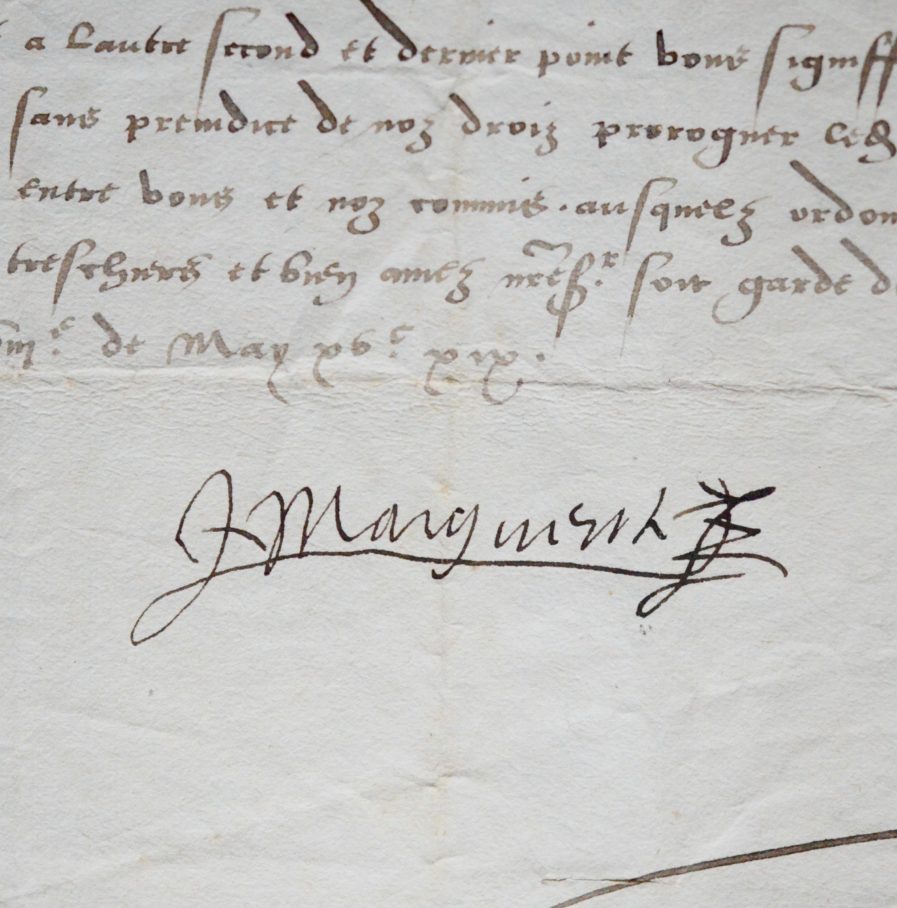 a Lautre second et dernier point vous signiff
sans preiudice de noz droiz proroguer led
entre vous et noz commis. ausquelz ordon
treschiers et bien amez nre sr soit garde d
de May xvc xix.
Marguerite